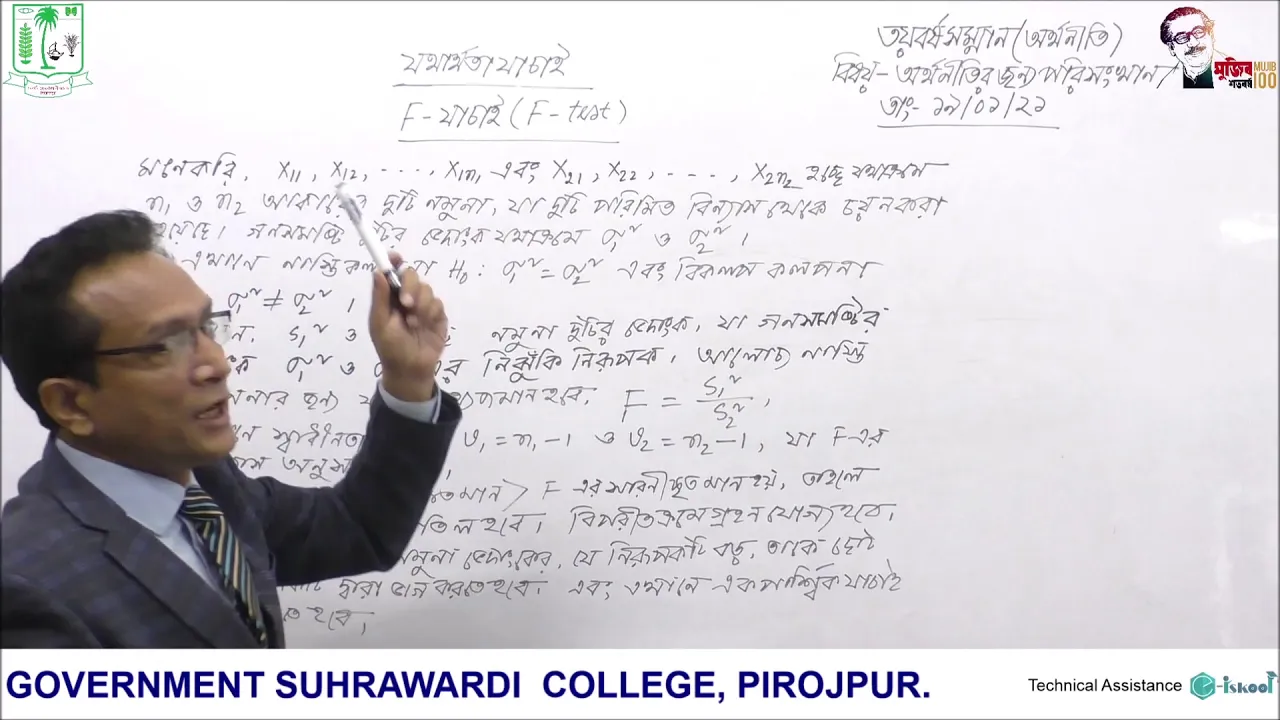 যথার্থতা যাচাই
F-যাচাই (F-test)
৩য় বর্ষ সম্মান (অর্থনীতি)
বিষয়- অর্থনীতির জন্য পরিসংখ্যান
তাং- ১৯/০১/২১
মুজিব
শতবর্ষ
MUJIB
100
মনেকরি, X₁₁, X₁₂, ----, X₁n₁ এবং X₂₁, X₂₂, ----, X₂n₂ হচ্ছে যথাক্রমে
n₁ ও n₂ আকারের দুটি নমুনা, যা দুটি পরিমিত বিন্যাস থেকে চয়ন করা
হয়েছে। জনসমষ্টি দুটির ভেদাংক যথাক্রমে σ₁² ও σ₂² ।
এখানে নাস্তি H₀ : σ₁² = σ₂² এবং বিকল্প কল্পনা
σ₁² ≠ σ₂² ।
S₁² ও নমুনা দুটির ভেদাংক, যা জনসমষ্টির
σ₁² ও নিঝুঁকি নিরূপক। আলোচ্য নাস্তি
হবে, F = S₁²/S₂² ,
υ₁ = n₁-1 ও υ₂ = n₂-1, যা F এর
মান > F এর সারনীকৃত মান হয়, তাহলে
বাতিল হবে। বিপরীতক্রমে গ্রহন যোগ্য হবে।
নমুনা ভেদাংকের, যে নিরূপকটি বড়, তাকে ছোট
দ্বারা ভাগ করতে হবে। এবং এখানে এক পার্শ্বিক যাচাই
হবে।
GOVERNMENT SUHRAWARDI COLLEGE, PIROJPUR.
Technical Assistance e-iskool